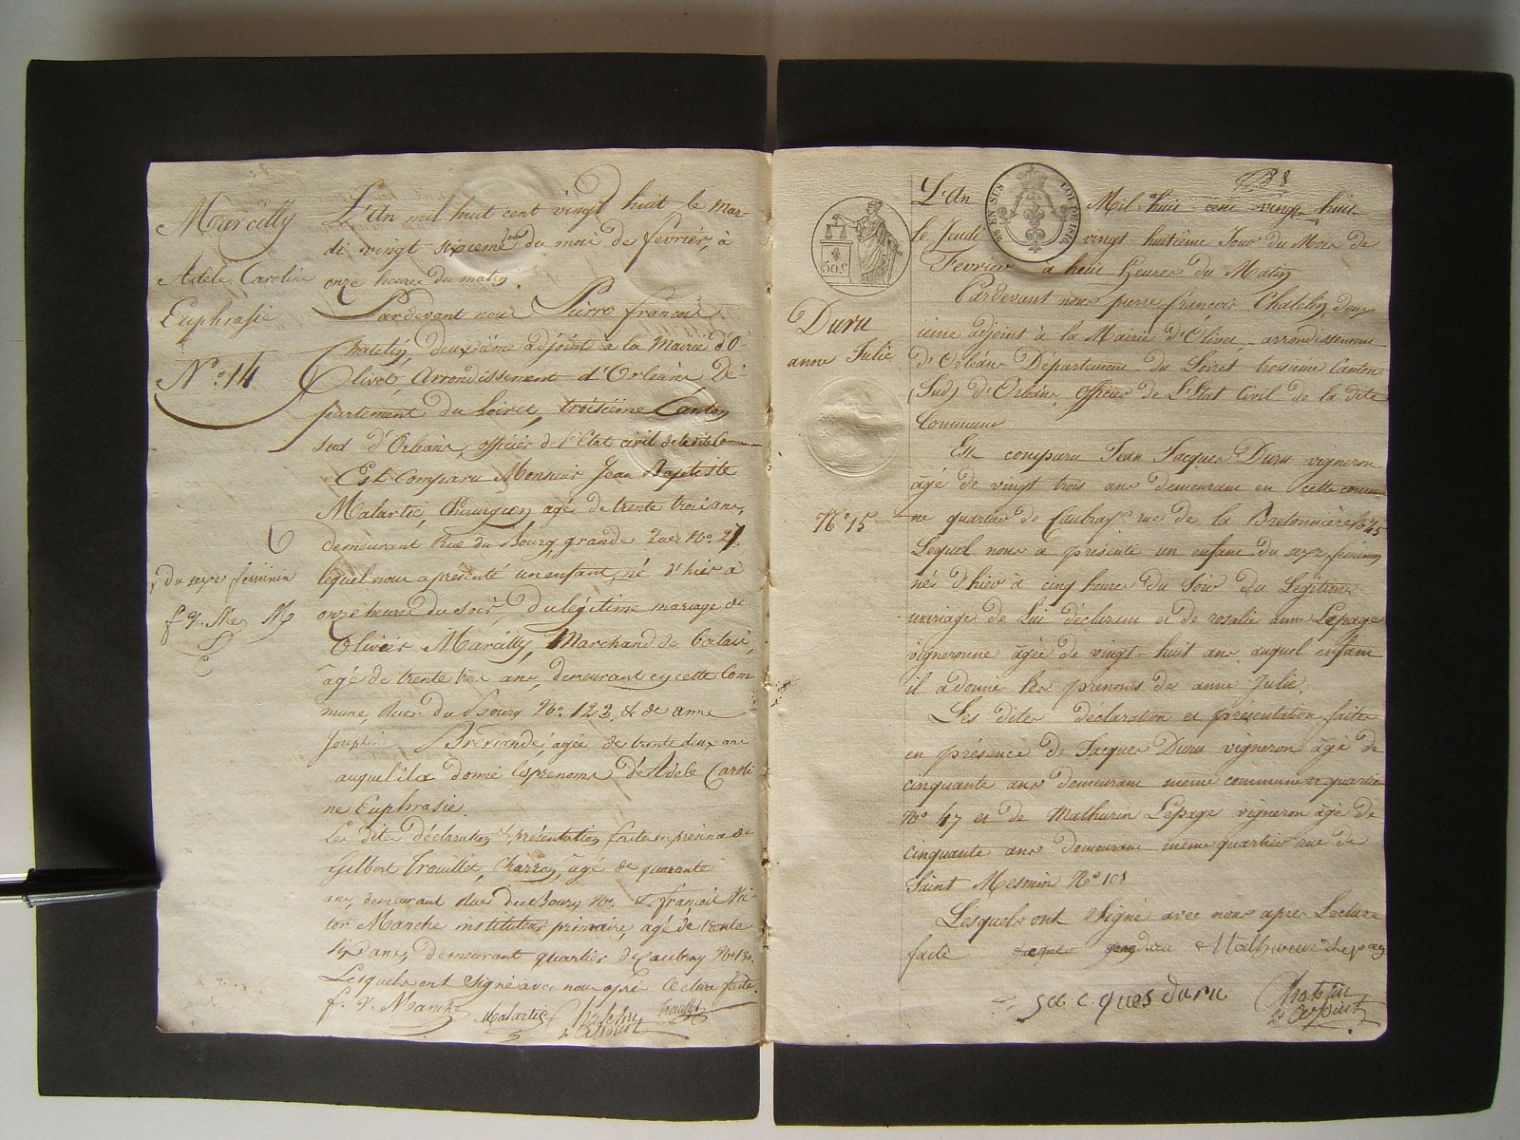 Marcilly
Adèle Caroline
Euphrasie
N.° 14
du sexe féminin
L'An mil huit cent vingt huit le mar-
di vingt sixieme du mois de février, à
onze heures du matin.
Pardevant nous Pierre françois
Chatelin, deuxième adjoint à la Mairie d'O-
livet Arrondissement d'Orléans Dé-
partement du Loiret, troisième Canton
sud d'Orléans, officier de l'Etat civil de la dite Commune
Est Comparu Monsieur Jean Baptiste
Malartic, Chirurgien, agé de trente trois ans,
demeurant Rue du Bourg, grande N° 27.
lequel nous a présenté un enfant, né d'hier à
onze heures du soir, du légitime mariage de
Olivier Marcilly, Marchand de
âgé de trente trois ans, demeurant en cette Com-
mune, Rue du Bourg N° 123, & de anne
Joséphine agée de trente deux ans
auquel il a donné les prenoms d'Adèle Caroli-
ne Euphrasie.
Les dites déclaration & présentation faite en présence de
Gilbert Trouillet, Charron, agé de quarante
ans, demeurant Rue du Bourg N°. & françois Vic-
tor Manche instituteur primaire, agé de trente
sept ans, demeurant quartier de Caubray
Lesquels ont signé avec nous après lecture faite.
f. V. Manche Malartic Chatelin Trouillet
adjoint
98
98 EN SUS LOI DE 1816
50.c
Duru
anne Julie
N° 15
L'An Mil huit cent vingt huit
le Jeudi vingt huitième Jour du Mois de
Fevrier à huit heures du Matin
Pardevant nous pierre françois Chatelin deux-
ième adjoint à la Mairie d'Olivet arrondissement
d'Orléans Département du Loiret troisieme Canton
(Sud) d'Orléans, officier de L'Etat Civil de la dite
Commune
Est comparu Jean Jacques Duru vigneron
âgé de vingt trois ans demeurant en cette commu-
ne quartier de Caubray rue de la Bretonnière N° 45
Lequel nous a présenté un enfant du sexe féminin
né d'hier à cinq heures du soir du Légitime
mariage de Lui déclarant et de rosalie anne Lepage
vigneronne âgée de vingt-huit ans auquel enfant
il a donné les prenoms de anne Julie.
Les dites déclaration et présentation faites
en présence de Jacques Duru vigneron âgé de
cinquante ans demeurant même commune et quartier
N° 47 et de Mathurin Lepage vigneron âgé de
cinquante ans demeurant même quartier rue de
Saint Mesmin N° 101
Lesquels ont signé avec nous après Lecture
faite Mathurin Lepage
Jacques duru Chatelin
adjoint